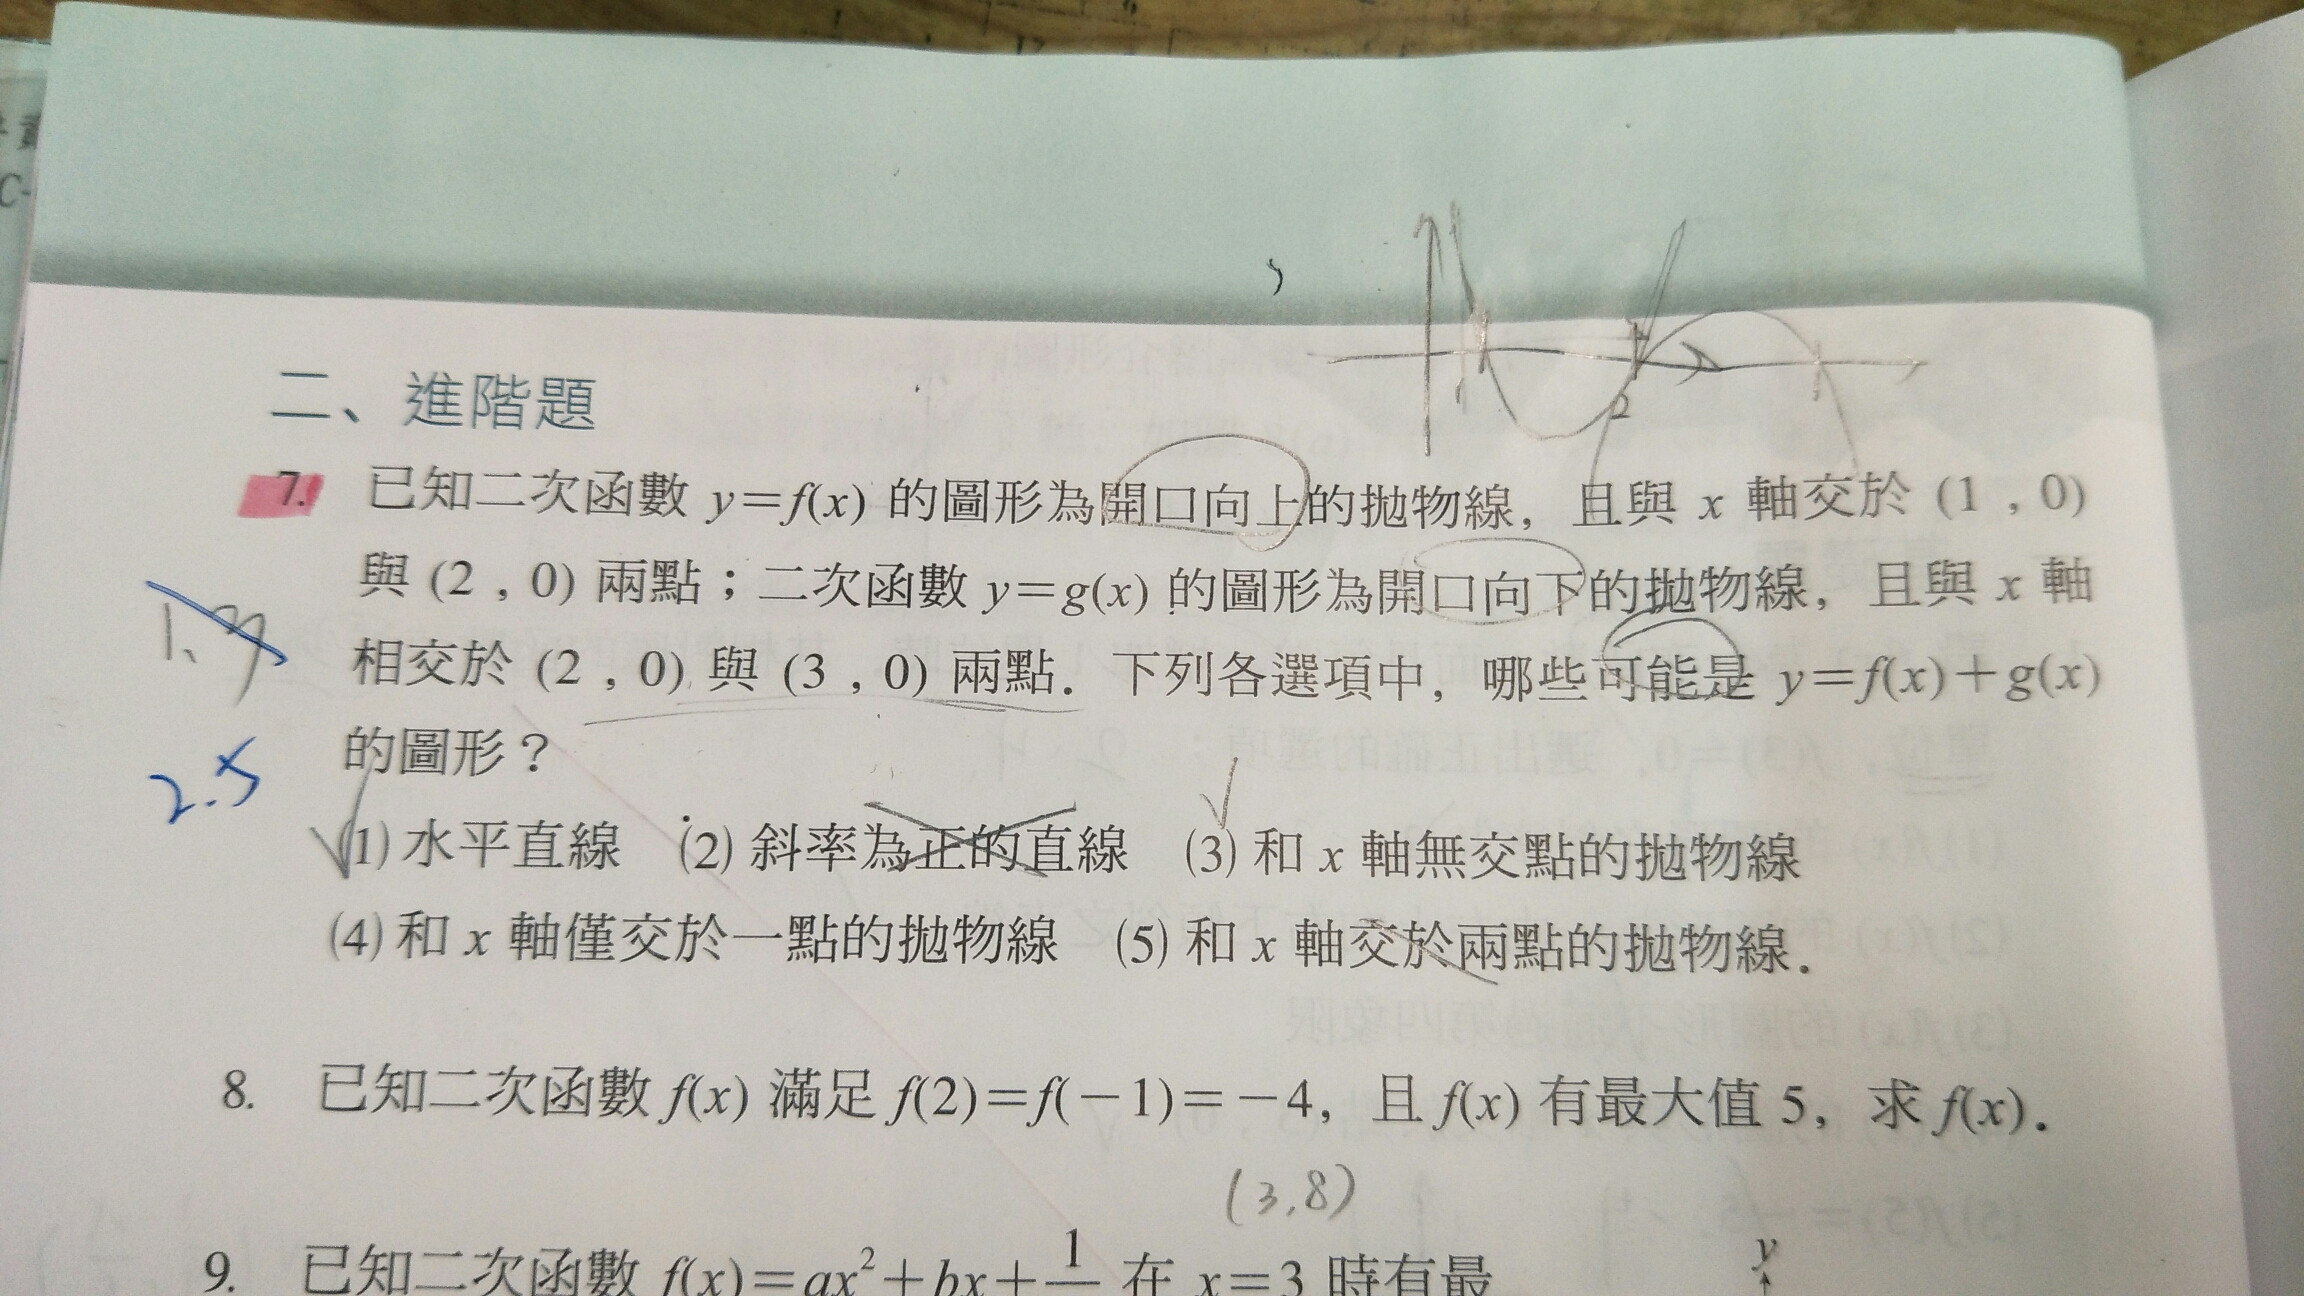 二、進階題
7. 已知二次函數 y=f(x) 的圖形為開口向上的拋物線，且與 x 軸交於 (1 , 0)
與 (2 , 0) 兩點；二次函數 y=g(x) 的圖形為開口向下的拋物線，且與 x 軸
1、3
相交於 (2 , 0) 與 (3 , 0) 兩點．下列各選項中，哪些可能是 y=f(x)+g(x)
的圖形？
2.5
(1) 水平直線 (2) 斜率為正的直線 (3) 和 x 軸無交點的拋物線
(4) 和 x 軸僅交於一點的拋物線 (5) 和 x 軸交於兩點的拋物線．
8. 已知二次函數 f(x) 滿足 f(2)=f(−1)=−4，且 f(x) 有最大值 5，求 f(x)．
(3,8)
9. 已知二次函數 f(x)=ax²+bx+1 在 x=3 時有最
y